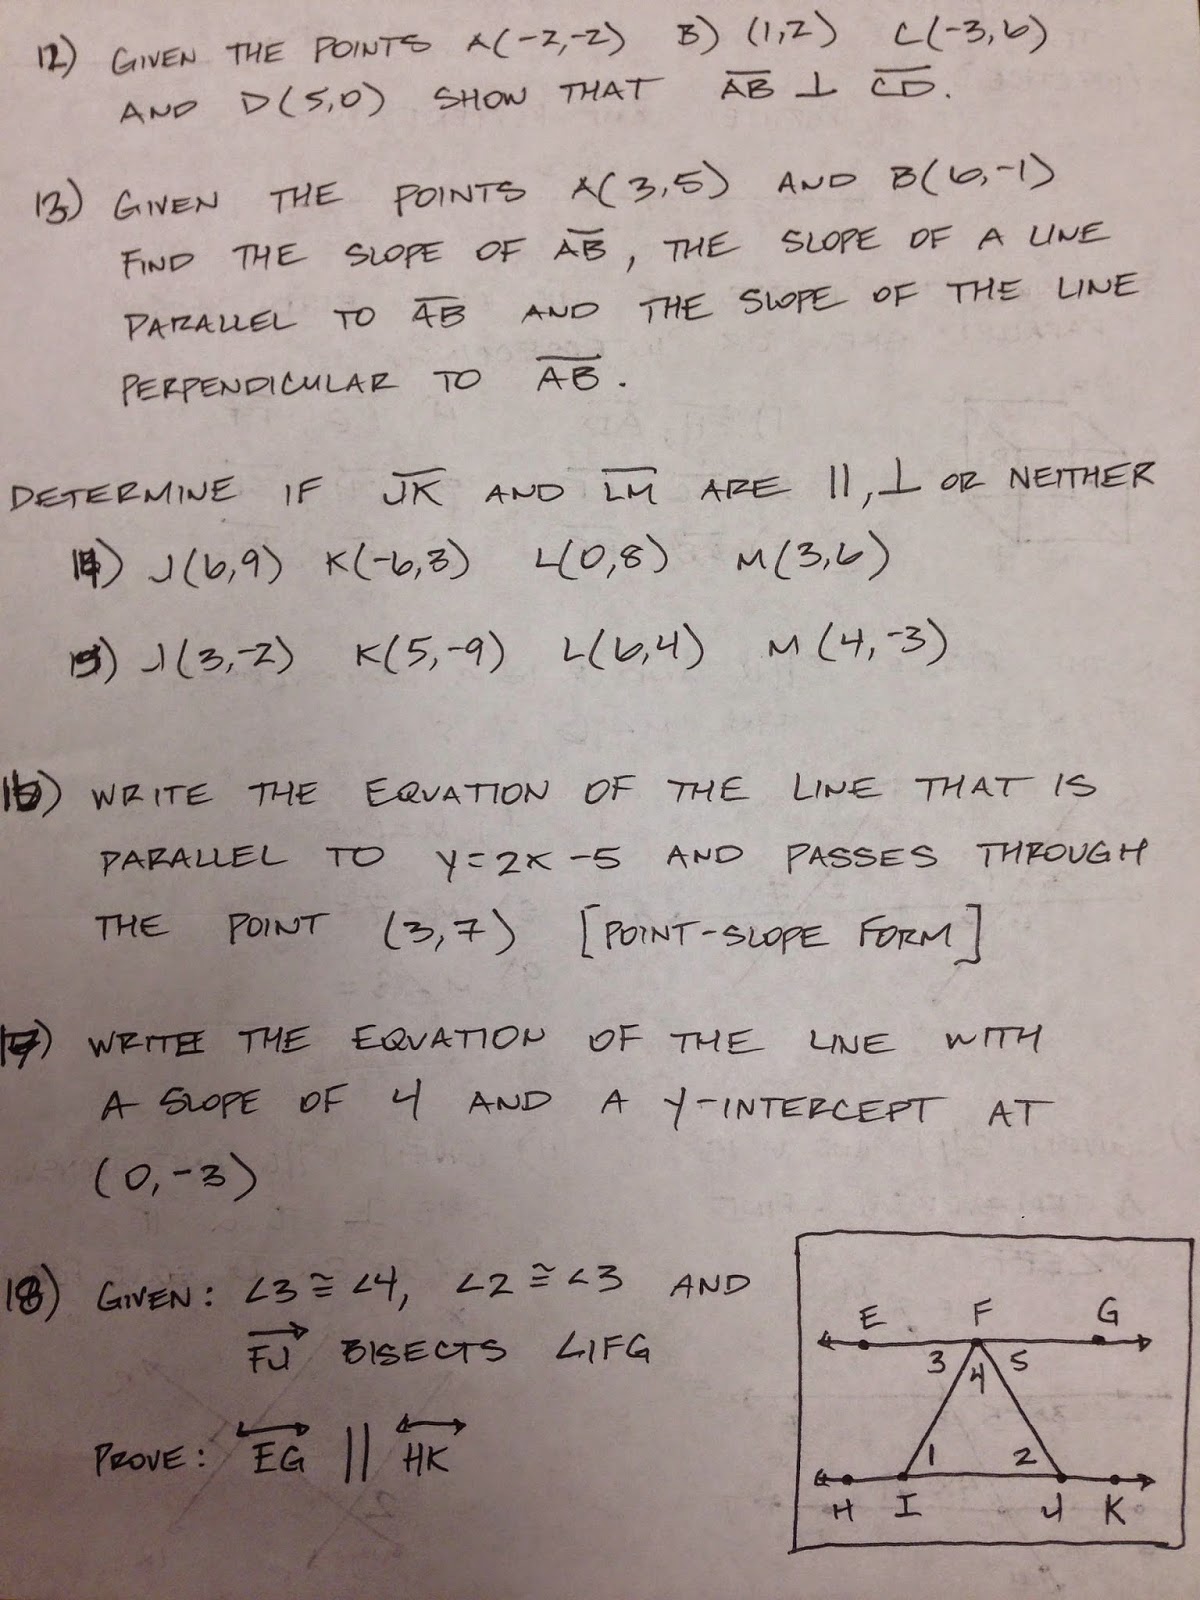 12) GIVEN THE POINTS A(-2,-2) B) (1,2) C(-3,6)
AND D(5,0) SHOW THAT AB ⊥ CD.
13) GIVEN THE POINTS A(3,5) AND B(6,-1)
FIND THE SLOPE OF AB, THE SLOPE OF A LINE
PARALLEL TO AB AND THE SLOPE OF THE LINE
PERPENDICULAR TO AB.
DETERMINE IF JK AND LM ARE ||, ⊥ OR NEITHER
14) J(6,9) K(-6,3) L(0,8) M(3,6)
15) J(3,-2) K(5,-9) L(6,4) M(4,-3)
16) WRITE THE EQUATION OF THE LINE THAT IS
PARALLEL TO Y=2X-5 AND PASSES THROUGH
THE POINT (3,7) [POINT-SLOPE FORM]
17) WRITE THE EQUATION OF THE LINE WITH
A SLOPE OF 4 AND A Y-INTERCEPT AT
(0,-3)
18) GIVEN: ∠3 ≅ ∠4, ∠2 ≅ ∠3 AND
FJ BISECTS ∠IFG
PROVE: EG || HK
E F G
3 4 5
1 2
H I J K